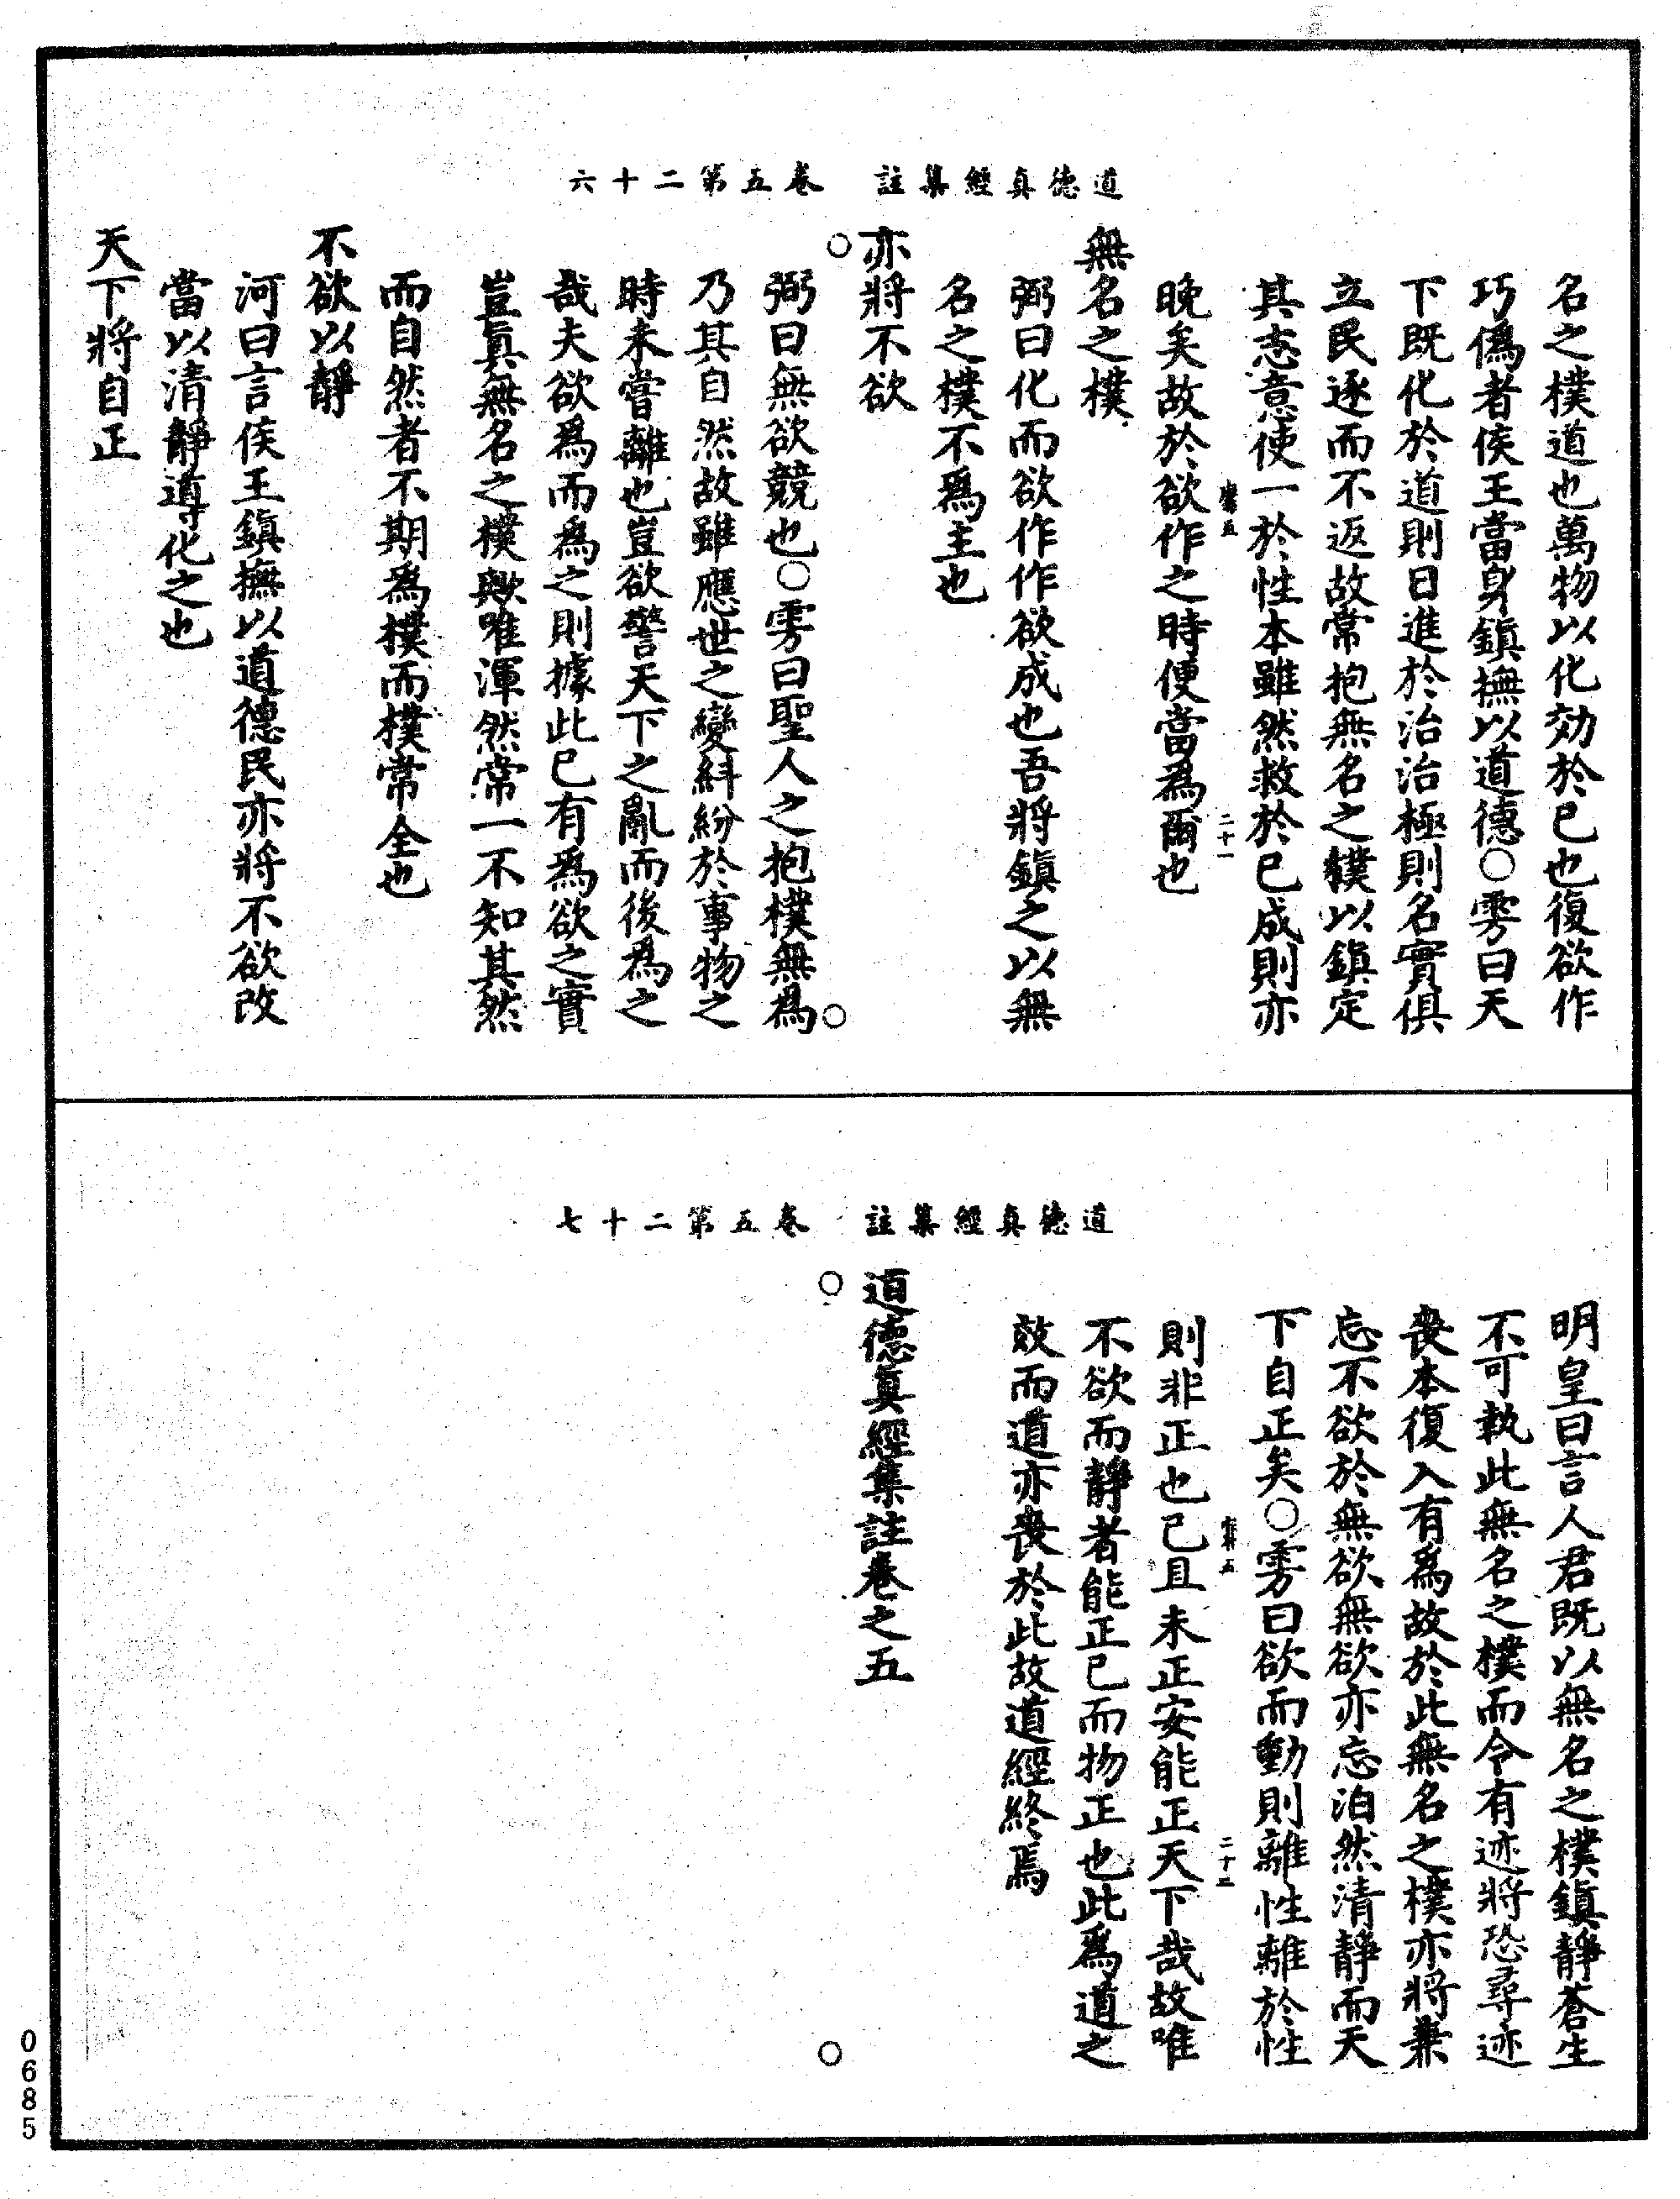 道德真經集註　卷五第二十六
名之樸道也萬物以化効於已也復欲作
巧僞者侯王當身鎮撫以道德○雱曰天
下既化於道則日進於治治極則名實俱
立民逐而不返故常抱無名之樸以鎮定
其志意使一於性本雖然救於已成則亦
二十一
晚矣故於欲作之時便當爲爾也
無名之樸
弼曰化而欲作作欲成也吾將鎮之以無
名之樸不爲主也
亦將不欲
弼曰無欲競也○雱曰聖人之抱樸無爲
乃其自然故雖應世之變糾紛於事物之
時未嘗離也豈欲警天下之亂而後爲之
哉夫欲爲而爲之則據此已有爲欲之實
豈眞無名之樸歟唯渾然常一不知其然
而自然者不期爲樸而樸常全也
不欲以靜
河曰言侯王鎮撫以道德民亦將不欲改
當以清靜導化之也
天下將自正
道德真經集註　卷五第二十七
明皇曰言人君既以無名之樸鎮靜蒼生
不可執此無名之樸而令有迹將恐尋迹
喪本復入有爲故於此無名之樸亦將兼
忘不欲於無欲無欲亦忘泊然清靜而天
下自正矣○雱曰欲而動則離性離於性
二十二
則非正也已且未正安能正天下哉故唯
不欲而靜者能正已而物正也此爲道之
效而道亦喪於此故道經終焉
道德眞經集註卷之五
0685